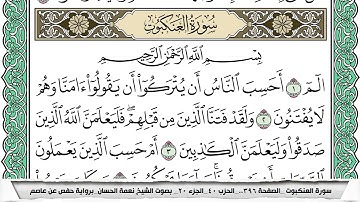 سُورَةُ العَنكَبُوتِ
بِسْمِ ٱللَّهِ ٱلرَّحْمَٰنِ ٱلرَّحِيمِ
الٓمٓ ١ أَحَسِبَ ٱلنَّاسُ أَن يُتْرَكُوٓا۟ أَن يَقُولُوٓا۟ ءَامَنَّا وَهُمْ
لَا يُفْتَنُونَ ٢ وَلَقَدْ فَتَنَّا ٱلَّذِينَ مِن قَبْلِهِمْ ۖ فَلَيَعْلَمَنَّ ٱللَّهُ ٱلَّذِينَ
صَدَقُوا۟ وَلَيَعْلَمَنَّ ٱلْكَٰذِبِينَ ٣ أَمْ حَسِبَ ٱلَّذِينَ يَعْمَلُونَ
سورة العنكبوت _الصفحة ٣٩٦_ الحزب ٤٠_الجزء ٢٠_ بصوت الشيخ نعمة الحسان_برواية حفص عن عاصم